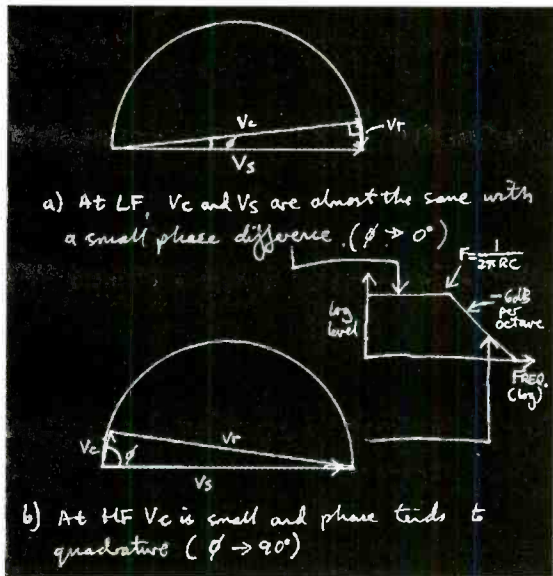 Vc
Vr
φ
Vs
a) At LF, Vc and Vs are almost the same with
a small phase difference. (φ → 0°)
F=1/2πRC
-6dB
per
octave
log
level
FREQ.
(log)
Vc
φ
Vr
Vs
b) At HF Vc is small and phase tends to
quadrature (φ → 90°)